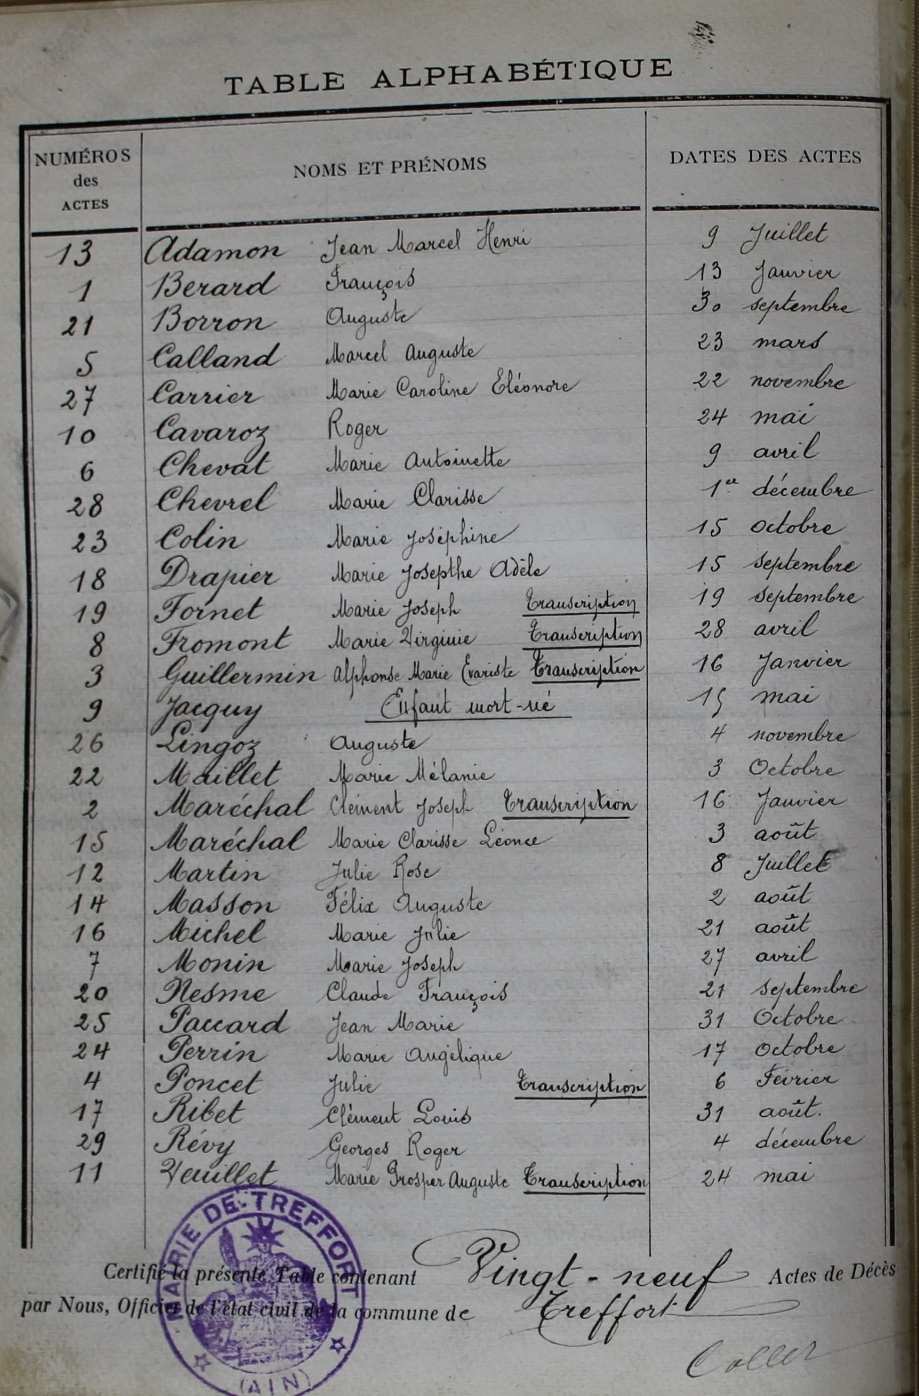 TABLE ALPHABÉTIQUE
NUMÉROS des ACTES NOMS ET PRÉNOMS DATES DES ACTES
13 Adamon Jean Marcel Henri 9 Juillet
1 Berard François 13 Janvier
21 Borron Auguste 30 septembre
5 Calland Marcel Auguste 23 mars
27 Carrier Marie Caroline Eléonore 22 novembre
10 Cavaroz Roger 24 mai
6 Chevat Marie Antoinette 9 avril
28 Chevrel Marie Clarisse 1er décembre
23 Colin Marie Joséphine 15 octobre
18 Drapier Marie Josepthe Adèle 15 septembre
19 Fornet Marie Joseph Transcription 19 septembre
8 Fromont Marie Virginie Transcription 28 avril
3 Guillermin Alphonse Marie Evariste Transcription 16 Janvier
9 Jacquy Enfant mort-né 15 mai
26 Lingoz Auguste 4 novembre
22 Maillet Marie Mélanie 3 Octobre
2 Maréchal Clément Joseph Transcription 16 Janvier
15 Maréchal Marie Clarisse Léonce 3 août
12 Martin Julie Rose 8 Juillet
14 Masson Félix Auguste 2 août
16 Michel Marie Julie 21 août
7 Monin Marie Joseph 27 avril
20 Nesme Claude François 21 septembre
25 Paccard Jean Marie 31 Octobre
24 Perrin Marie Angélique 17 octobre
4 Poncet Julie Transcription 6 Février
17 Ribet Clément Louis 31 août.
29 Révy Georges Roger 4 décembre
11 Veuillet Marie Prosper Auguste Transcription 24 mai
MAIRIE DE TREFFORT
(AIN)
Certifié la présente Table contenant Vingt-neuf Actes de Décès
par Nous, Officier de l'état civil de la commune de Treffort